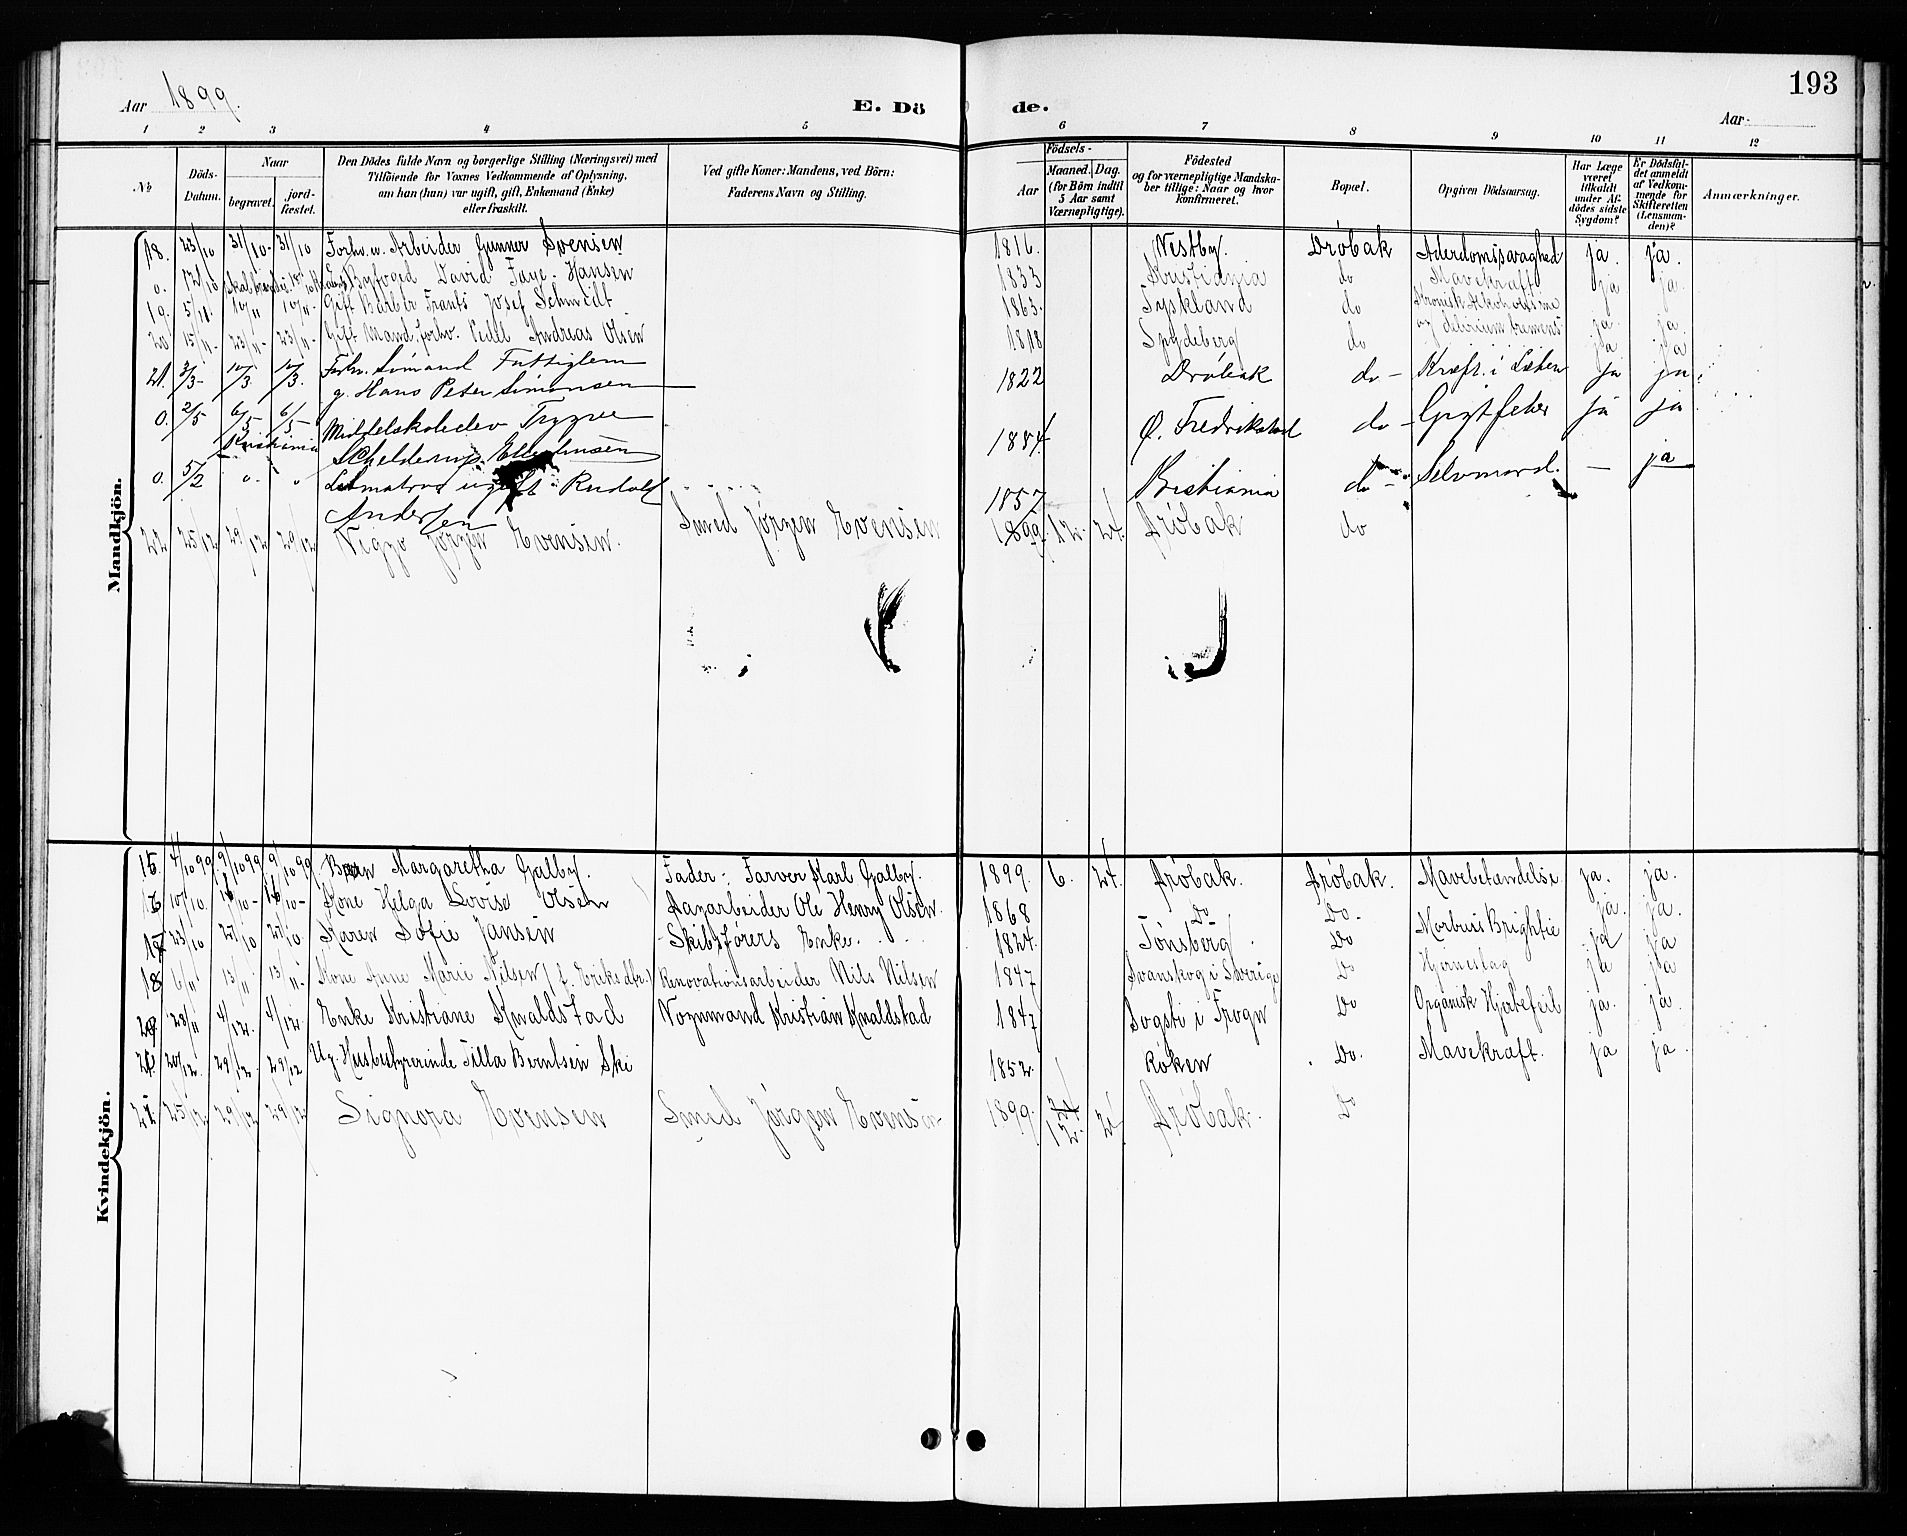 193
Aar 1899.
E. Dö de.
Aar
1 2 3 4 5 6 7 8 9 10 11 12
No
Döds-Datum.
Naar
begravet.
jord-fæstet.
Den Dödes fulde Navn og borgerlige Stilling (Næringsvei) med
Tilföiende for Voxnes Vedkommende af Oplysning,
om han (hun) var ugift, gift, Enkemand (Enke)
eller fraskilt.
Ved gifte Koner: Mandens, ved Börn:
Faderens Navn og Stilling.
Födsels-
Aar
Maaned. Dag.
(for Börn indtil
5 Aar samt
Værnepligtige).
Födested
og for værnepligtige Mandska-
ber tillige: Naar og hvor
konfirmeret.
Bopæl.
Opgiven Dödsaarsag.
Har Læge
været
tilkaldt
under Af-
dödes sidste
Sygdom?
Er Dödsfal-
det anmeldt
af Vedkom-
mende for
Skifteretten
(Lensman-
den)?
Anmærkninger.
Mandkjön.
18. 23/10 31/10- 31/10 Forhv. Arbeider Gunner Svensen 1816. Vestby. Dröbak Alderdomssvaghed ja. ja.
0. 12/10 Byfoged David Faye-Hansen 1833 Kristiania do Mavekræft ja ja.
19. 5/11. 10/11 10/11- Gift Barber Frants Josef Schmidt 1863. Tyskland do Kronisk Alkoholisme og delirium tremens ja ja.
20 15/11- 23/11- 23/11- Gift Mand, forhv. Pedel Andreas Olsen 1818 Spydeberg do ja ja
21. 3/3- 10/3. 10/3. Forhv. Sömand Fattiglem
g. Hans Peter Simonsen 1822 Dröbak do- Kræft i Læben ja ja
0. 2/5 6/5 6/5- Middelskoleelev Trygve
Schelderup 1884 Ø. Fredrikstad do- Gigtfeber ja ja
Kristiania
0. 5/2 o. o Letmatros ugift Rudolf
Andersen 1857 Kristiania do- Selvmord. — ja
22 25/12 29/12 29/12 Viggo Jörgen Evensen. Smed Jörgen Evensen 1899. 12. 24. Dröbak do
Kvindekjön.
15. 4/10 99 9/10 99 9/10 99 Barn Margaretha Galby. Fader: Farver Karl Galby. 1899. 6. 24. Dröbak. Dröbak. Mavebetændelse ja. ja.
16 10/10. 16/10- 16/10- Kone Helga Lovise Olsen Arbeider Ole Henry Olsen. 1868 Do Do. Morbus Brightii ja. ja.
17 23/10 27/10 27/10. Karen Sofie Jansen Skibsförers Enke. 1824. Tönsberg. Do Hjerneslag ja ja
18 6/11 13/11 13/11- Kone Anne Marie Nilsen (f. Eriksdtr.) Renovationsarbeider Nils Nilsen 1847 Svanskog i Sverige Do Organisk Hjertefeil ja ja
28/11 4/12. 4/12. Enke Kristiane Knaldstad Vognmand Kristian Knaldstad 1847 Sogsti i Frogn Do ja. ja.
20/12. 29/12. 29/12 Ug. Husbestyrerinde Tilla Berntsen Ski 1852. Röken Do. Mavekræft. ja ja.
21. 25/12 29/12 29/12. Signora Evensen Smed Jörgen Evensen 1899. 12. 24 Dröbak. Do